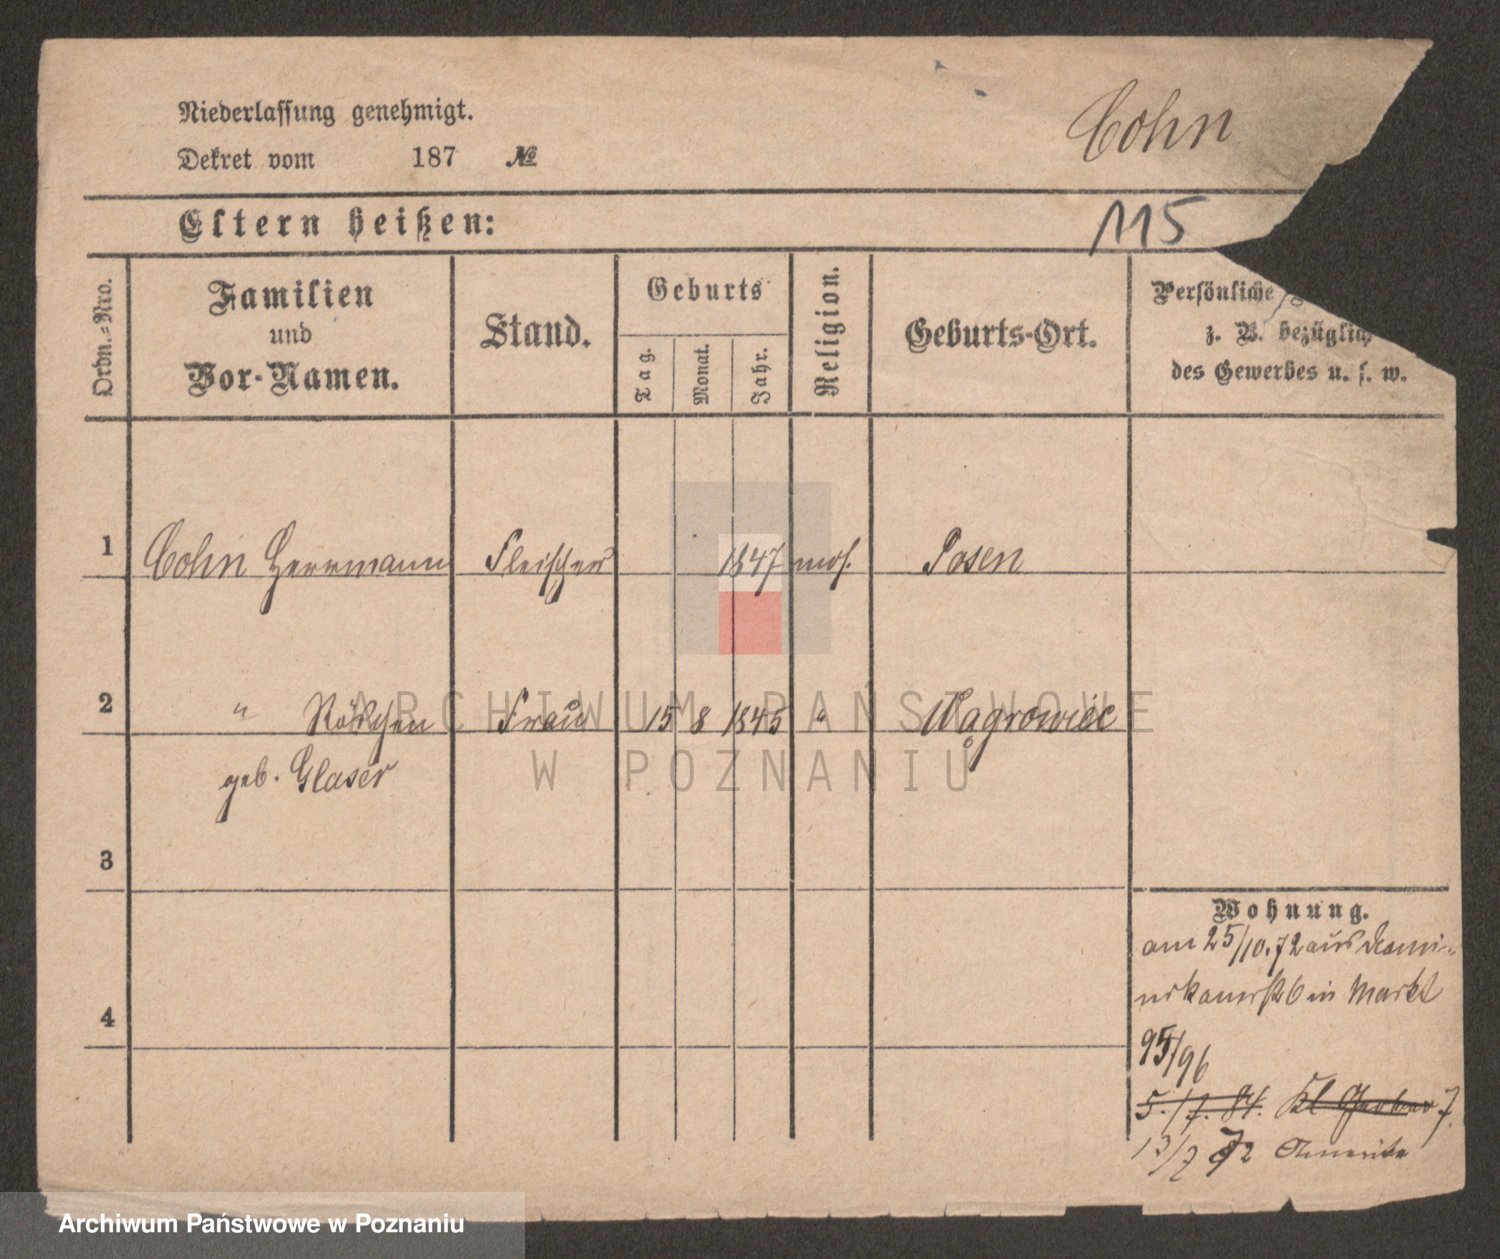 Niederlassung genehmigt.
Cohn
Dekret vom 187 №
Eltern heißen:
115
Ordn.-Nro.
Familien
und
Vor-Namen.
Stand.
Geburts
Tag.
Monat.
Jahr.
Religion.
Geburts-Ort.
Persönliche
z. B. bezüglich
des Gewerbes u. s. w.
1 Cohn Herrmann Fleischer 1847 mos. Posen
2 " Röschen Frau 15 8 1845 " Wągrowiec
geb. Glaser
3
4
Wohnung.
am 25/10.72 aus Domi-
nikanerst 6 in Markt
95/96
5./7. 84. Kl Gerber 7.
13/7 92
ARCHIWUM PAŃSTWOWE
W POZNANIU
Archiwum Państwowe w Poznaniu